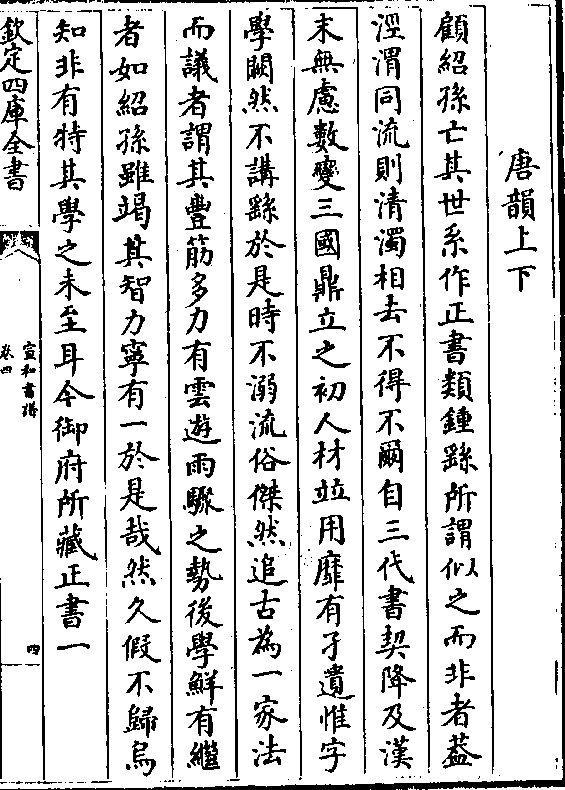 唐韻上下
顧紹孫亡其世系作正書類鍾繇所謂似之而非者葢
涇渭同流則清濁相去不得不爾自三代書契降及漢
末無慮數變三國鼎立之初人材並用靡有孑遺惟字
學闕然不講繇於是時不溺流俗傑然追古為一家法
而議者謂其豐筋多力有雲遊雨驟之勢後學鮮有繼
者如紹孫雖竭其智力寧有一於是哉然久假不歸烏
知非有特其學之未至耳今御府所藏正書一
欽定四庫全書
宣和書譜
卷四
四